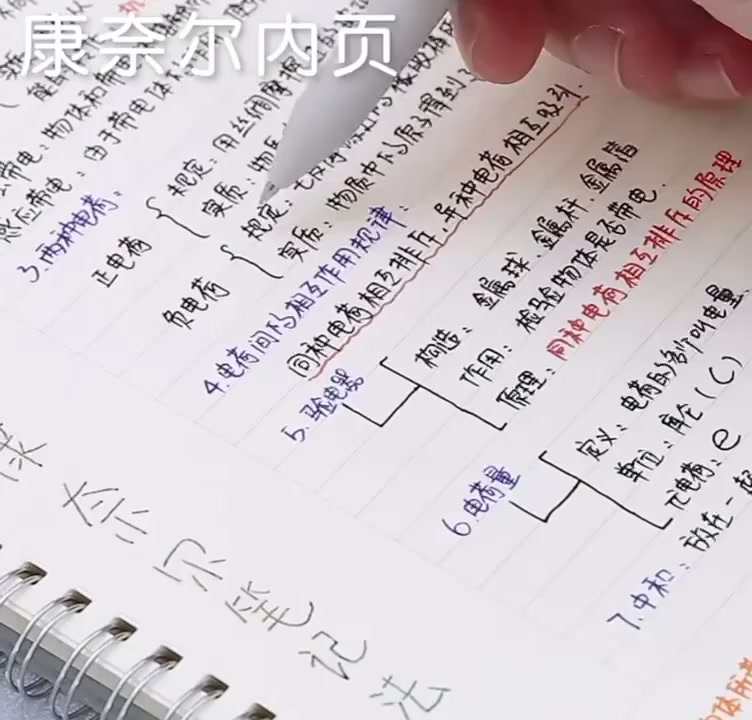 康奈尔内页
带电：物体和带
感应带电：由于带电体
3.两种电荷：
正电荷
规定：用丝绸摩擦
实质：物
负电荷
规定：
实质：物质中的原子得到
4.电荷间的相互作用规律：
同种电荷相互排斥，异种电荷相互吸引.
5.验电器
构造：金属球、金属杆、金属箔
作用：检验物体是否带电.
原理：同种电荷相互排斥的原理
6.电荷量
定义：电荷的多少叫电量.
单位：库仑(C)
元电荷：e
7.中和：放在一起
奈尔笔记法